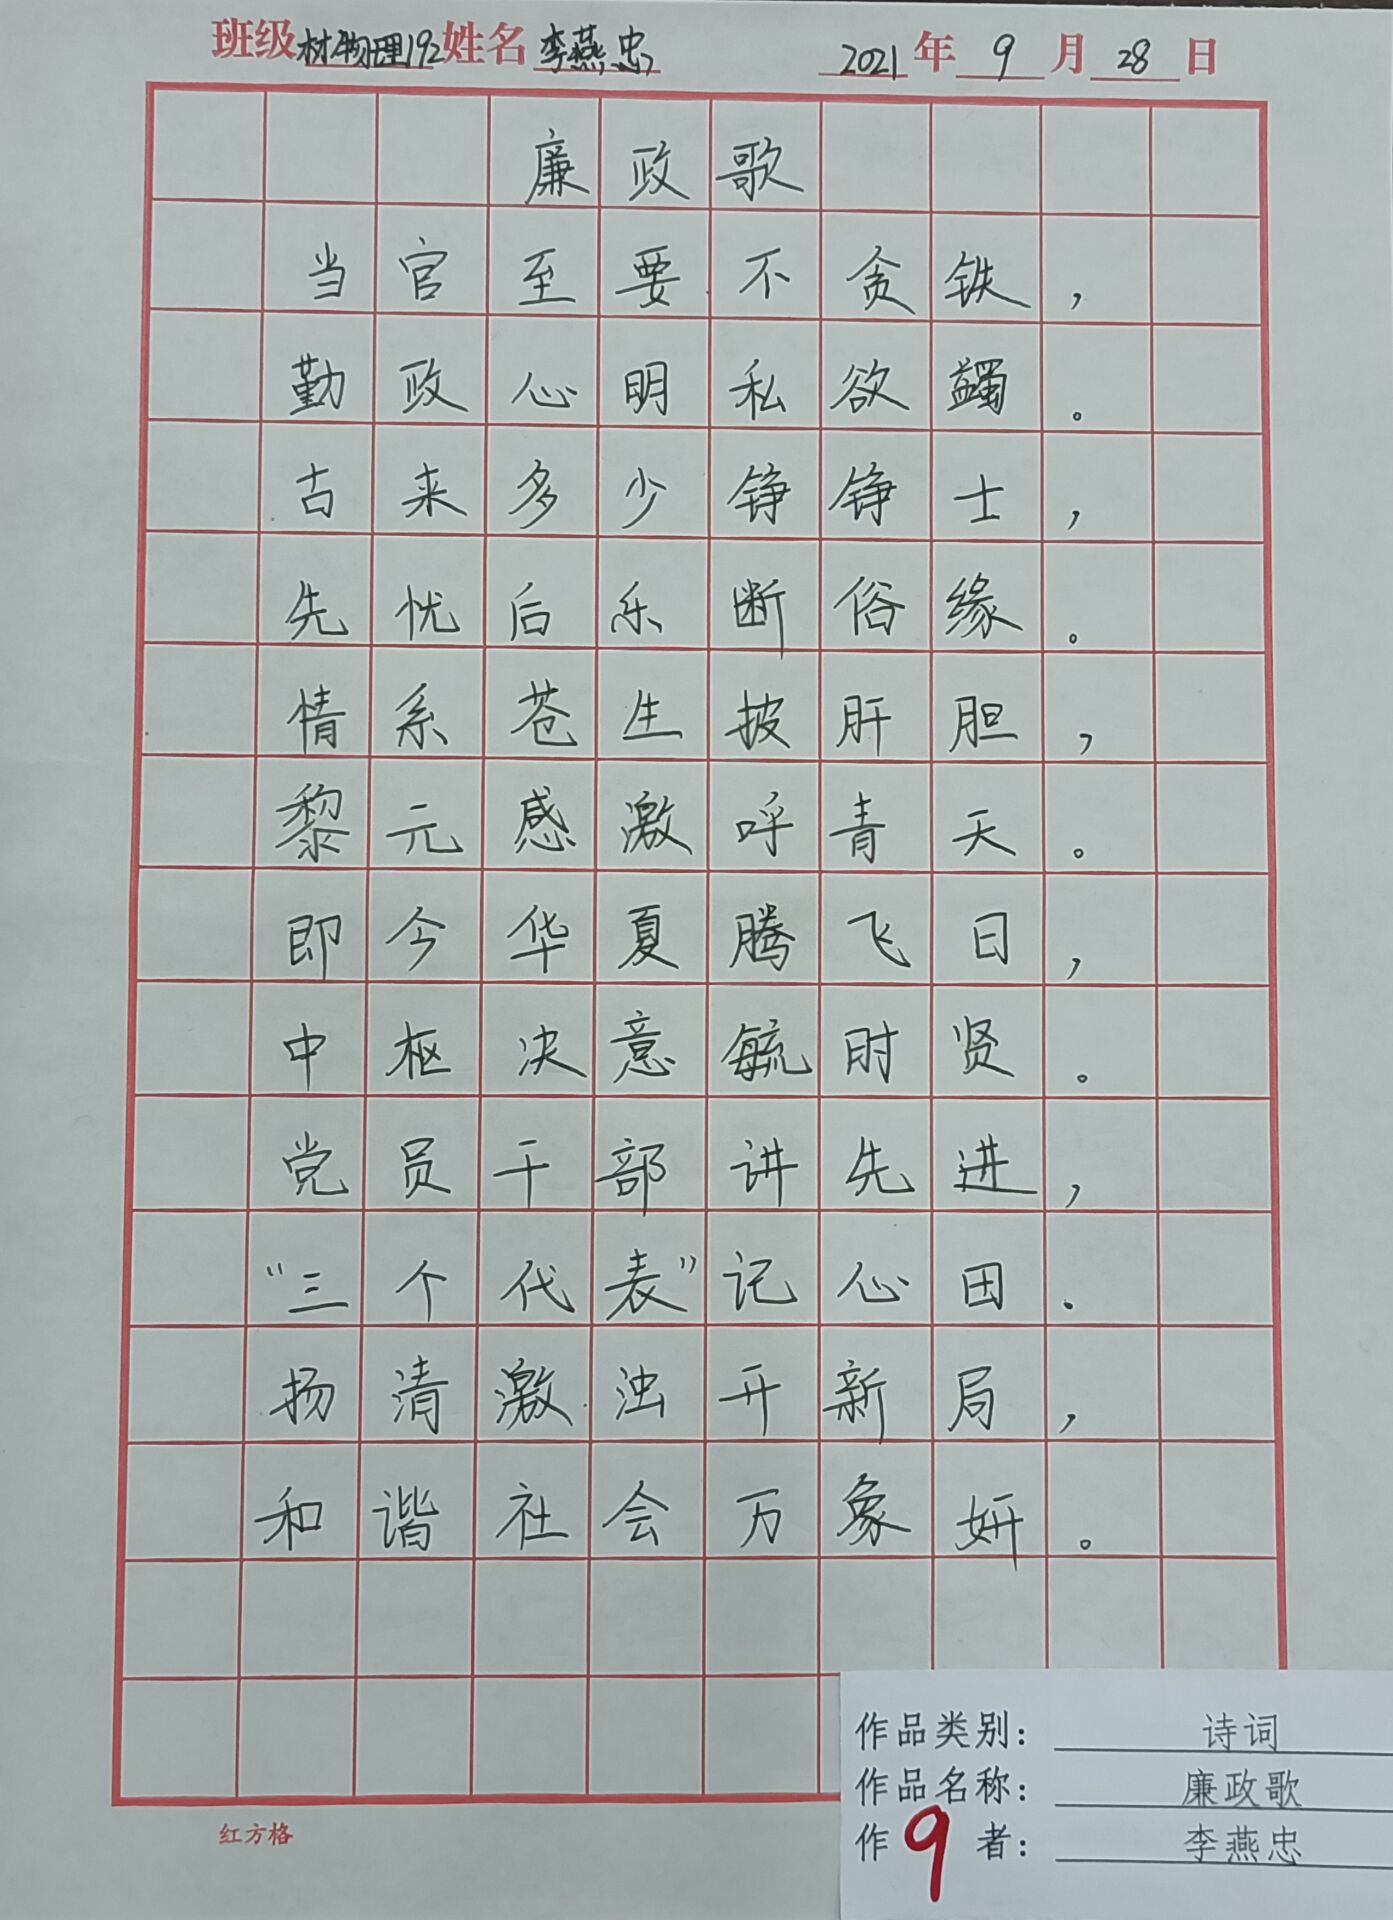 班级材物理192姓名李燕忠 2021年9月28日
廉政歌
当官至要不贪铁，
勤政心明私欲蠲。
古来多少铮铮士，
先忧后乐断俗缘。
情系苍生披肝胆，
黎元感激呼青天。
即今华夏腾飞日，
中枢决意毓时贤。
党员干部讲先进，
“三个代表”记心田.
扬清激浊开新局，
和谐社会万象妍。
红方格
作品类别：诗词
作品名称：廉政歌
作者：李燕忠
9